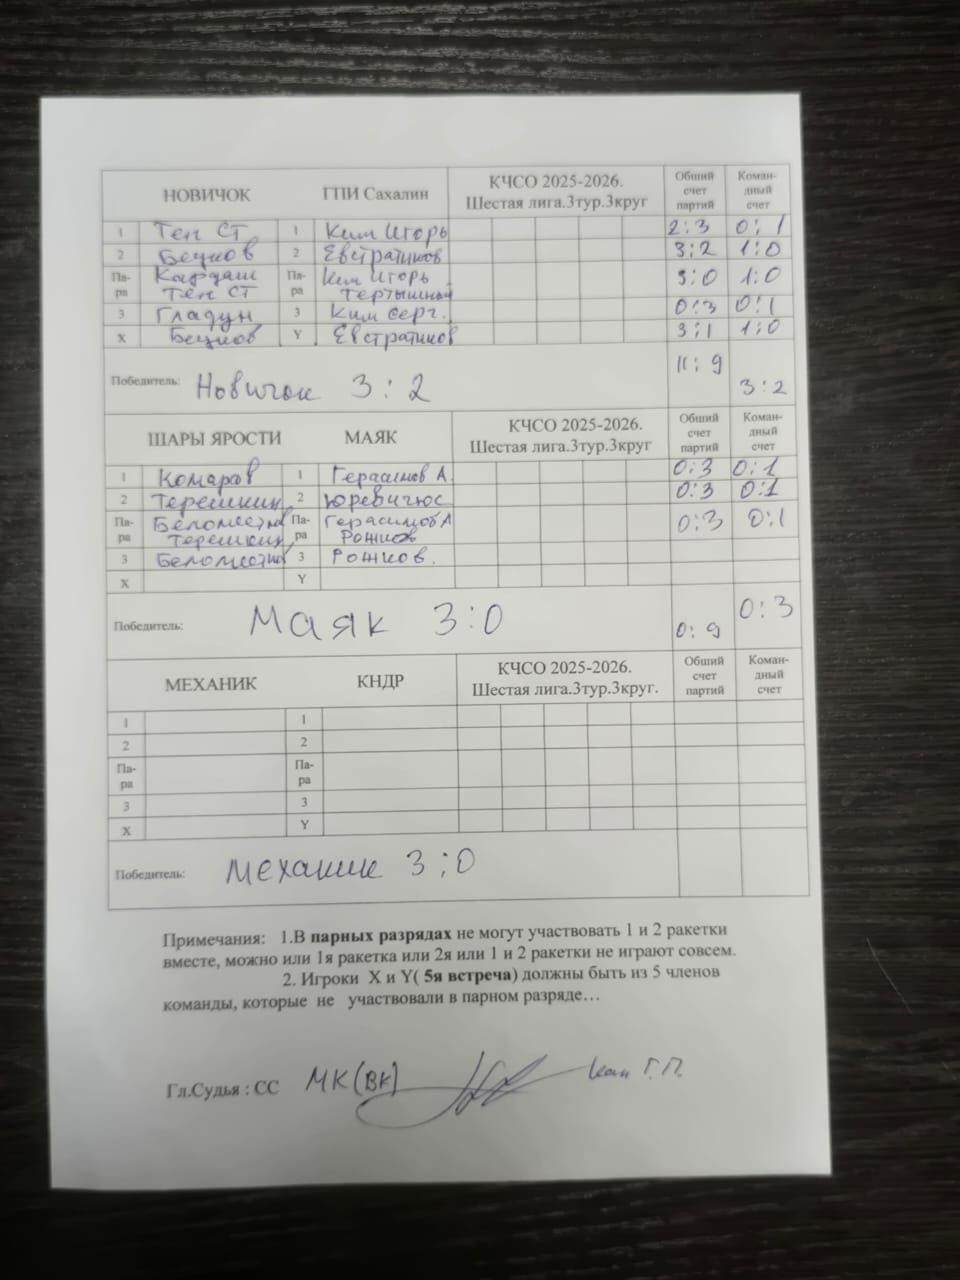 НОВИЧОК ГПИ Сахалин КЧСО 2025-2026. Общий Коман-
Шестая лига.3тур.3круг счет дный
партий счет
1 Тен СТ 1 Ким Игорь 2:3 0:1
2 2 Евстратиков 3:2 1:0
Па- Кардаш Па- Ким Игорь 3:0 1:0
ра Тен СТ ра Тертышный
3 Гладун 3 Ким Серг. 0:3 0:1
X Y Евстратиков 3:1 1:0
Победитель: Новичок 3:2 11:9 3:2
ШАРЫ ЯРОСТИ МАЯК КЧСО 2025-2026. Общий Коман-
Шестая лига.3тур.3круг счет дный
партий счет
1 Комаров 1 Герасимов А. 0:3 0:1
2 Терешкин 2 Юревичюс 0:3 0:1
Па- Па- Герасимов А 0:3 0:1
ра Терешкин ра Рожков
3 3 Рожков.
X Y
Победитель: Маяк 3:0 0:9 0:3
МЕХАНИК КНДР КЧСО 2025-2026. Общий Коман-
Шестая лига.3тур.3круг. счет дный
партий счет
1 1
2 2
Па- Па-
ра ра
3 3
X Y
Победитель: Механик 3:0
Примечания: 1.В парных разрядах не могут участвовать 1 и 2 ракетки
вместе, можно или 1я ракетка или 2я или 1 и 2 ракетки не играют совсем.
2. Игроки X и Y( 5я встреча) должны быть из 5 членов
команды, которые не участвовали в парном разряде…
Гл.Судья : СС МК(ВК) Кан Г.П.